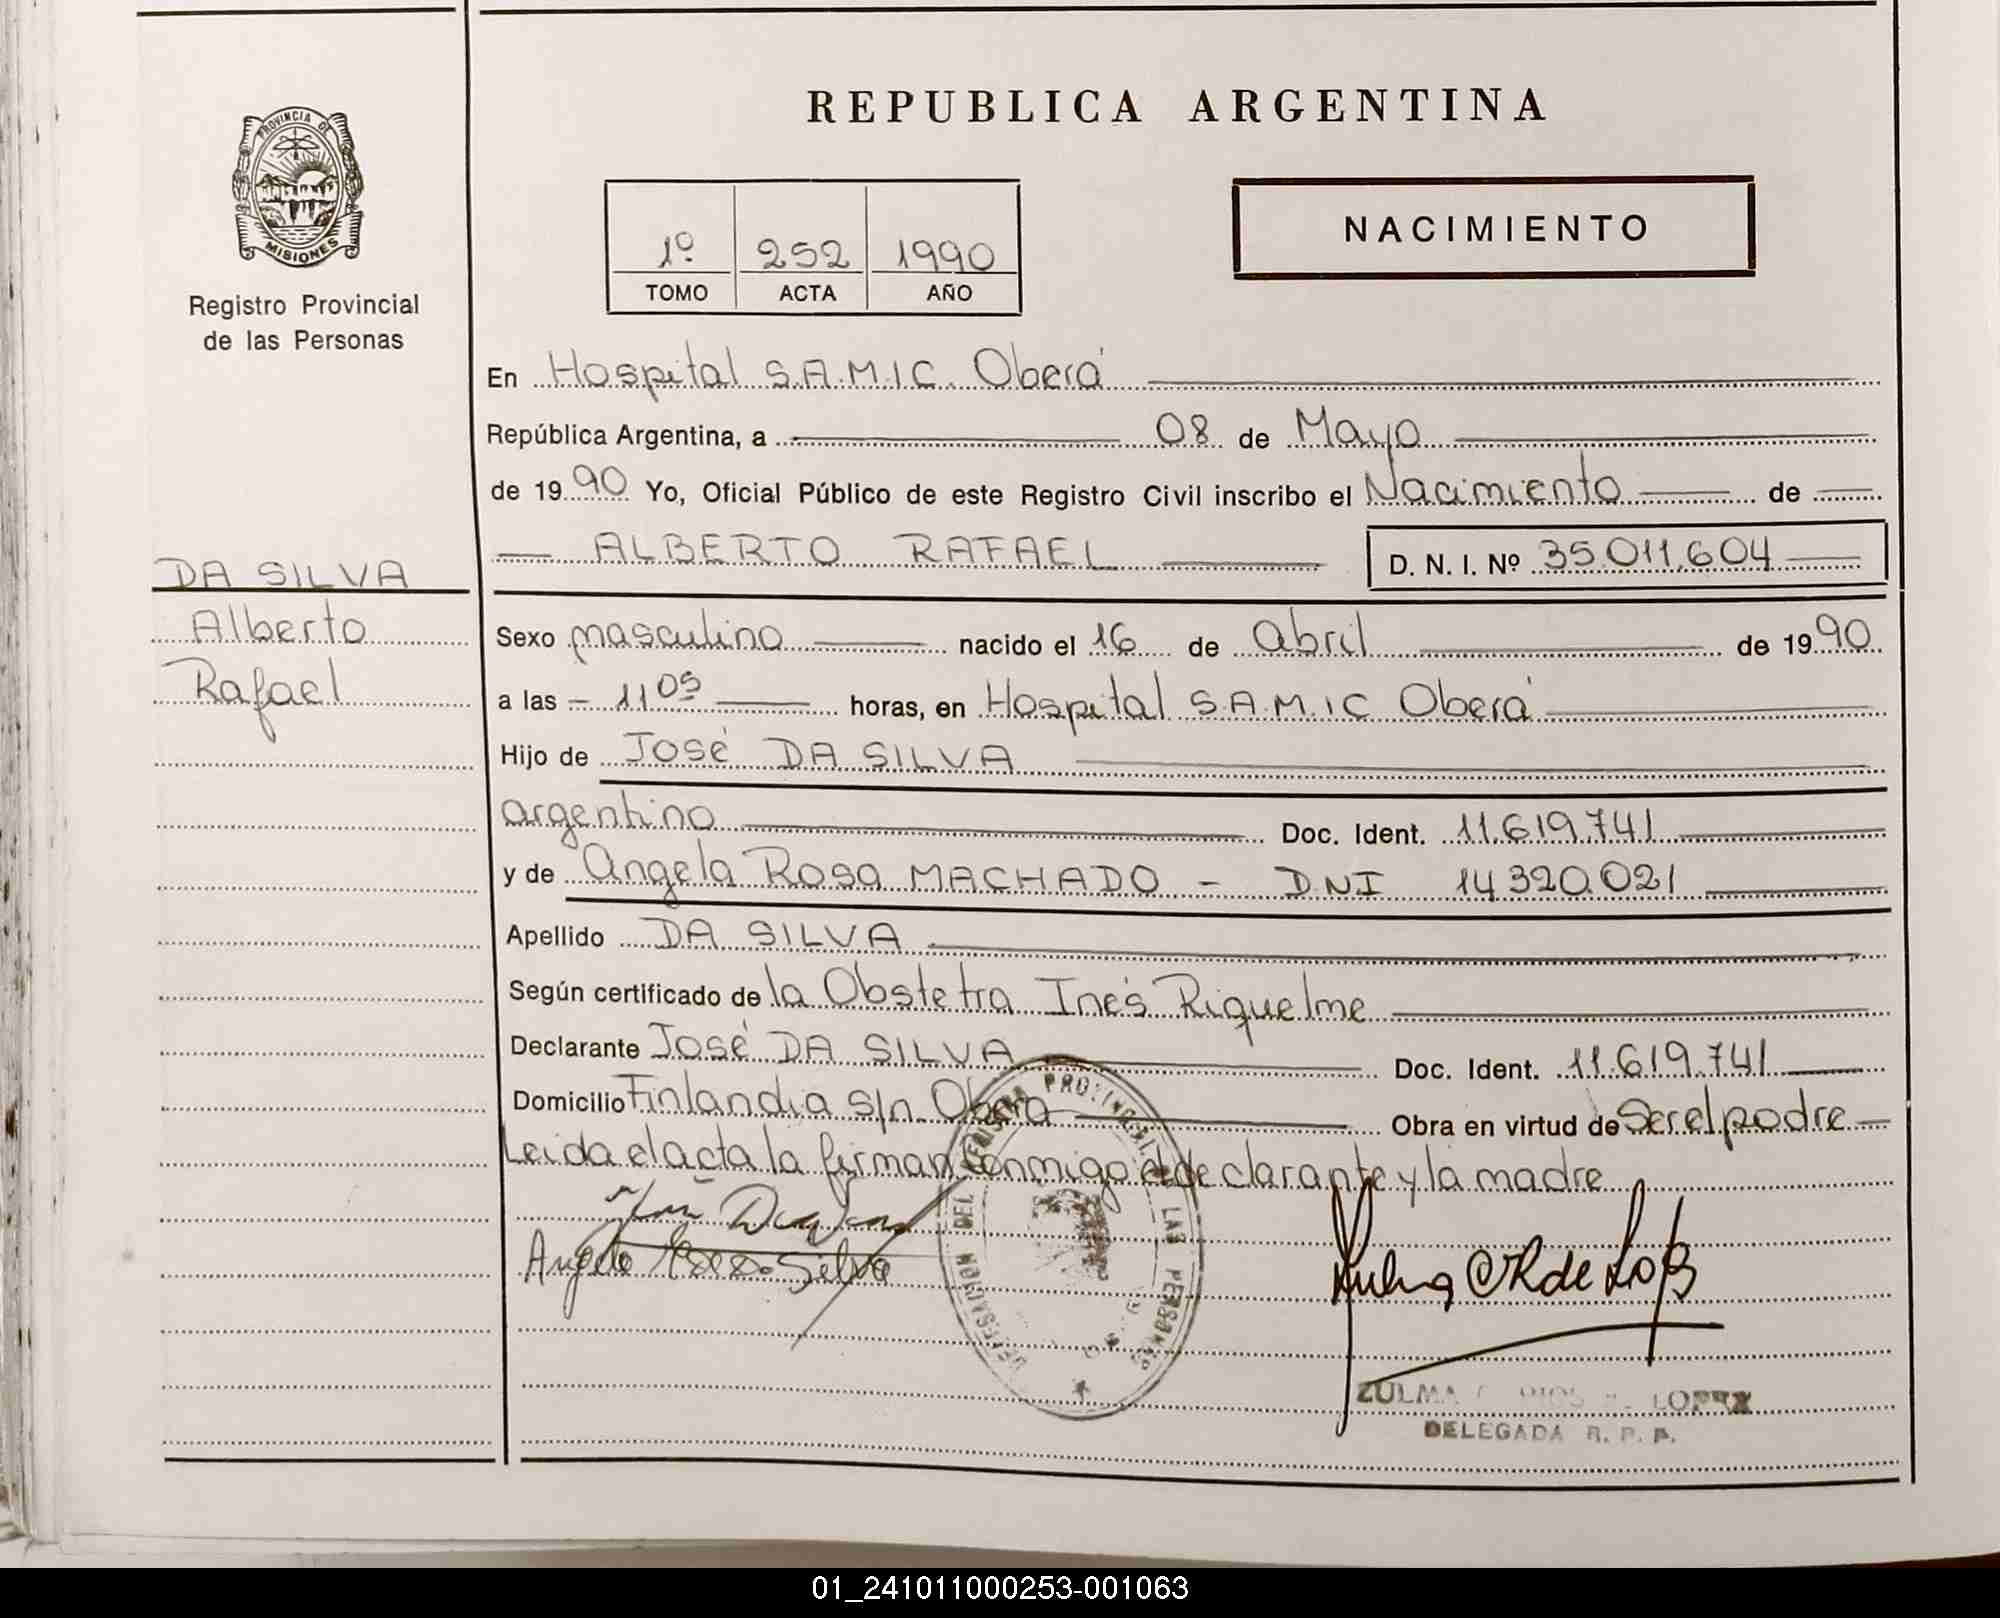 REPUBLICA ARGENTINA
PROVINCIA DE
MISIONES
Registro Provincial
de las Personas
1º 252 1990
TOMO ACTA AÑO
NACIMIENTO
En Hospital S.A.M.I.C. Oberá
República Argentina, a 08 de Mayo
de 1990 Yo, Oficial Público de este Registro Civil inscribo el Nacimiento de
ALBERTO RAFAEL D. N. I. Nº 35.011.604
DA SILVA
Alberto
Rafael
Sexo masculino nacido el 16 de Abril de 1990
a las 11 05 horas, en Hospital S.A.M.I.C Oberá
Hijo de José DA SILVA
argentino Doc. Ident. 11.619.741
y de Angela Rosa MACHADO - DNI 14 320.021
Apellido DA SILVA
Según certificado de la Obstetra Inés Riquelme
Declarante José DA SILVA Doc. Ident. 11.619.741
Domicilio Finlandia s/n. Oberá Obra en virtud de Ser el padre
Leida el acta la firman conmigo el declarante y la madre
DELEGACION DEL REGISTRO PROVINCIAL DE LAS PERSONAS
Angela Silva
de López
ZULMA LOPEZ
DELEGADA R. P. P.
01_241011000253-001063